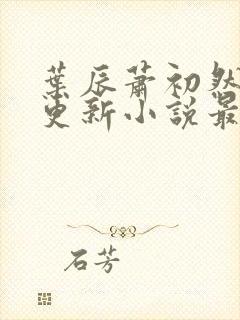 葉辰蕭初然
更新小說最
石芳